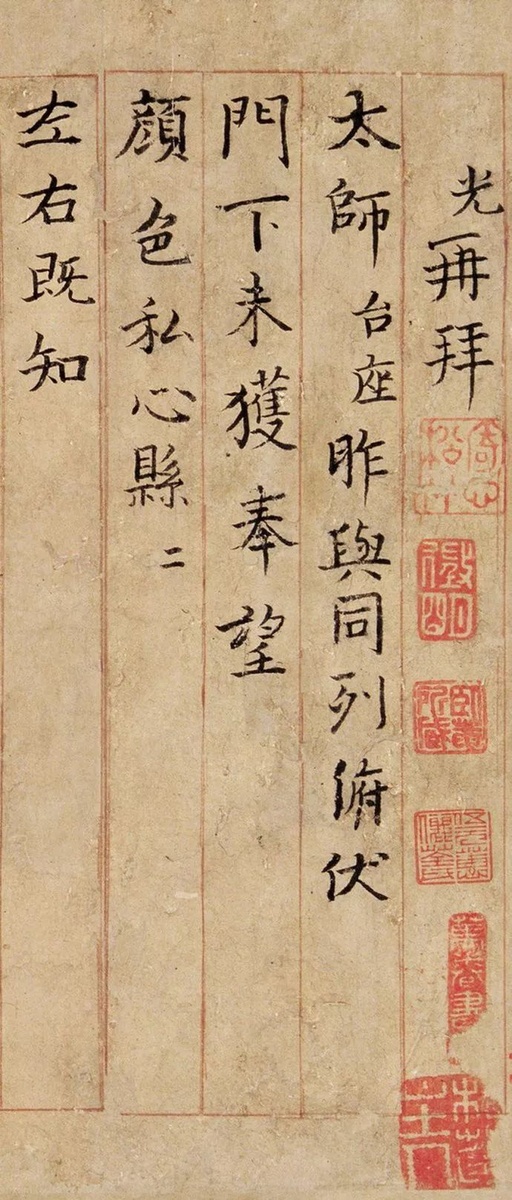 光再拜
太師台座昨與同列俯伏
門下未獲奉望
顏色私心縣〻
左右既知